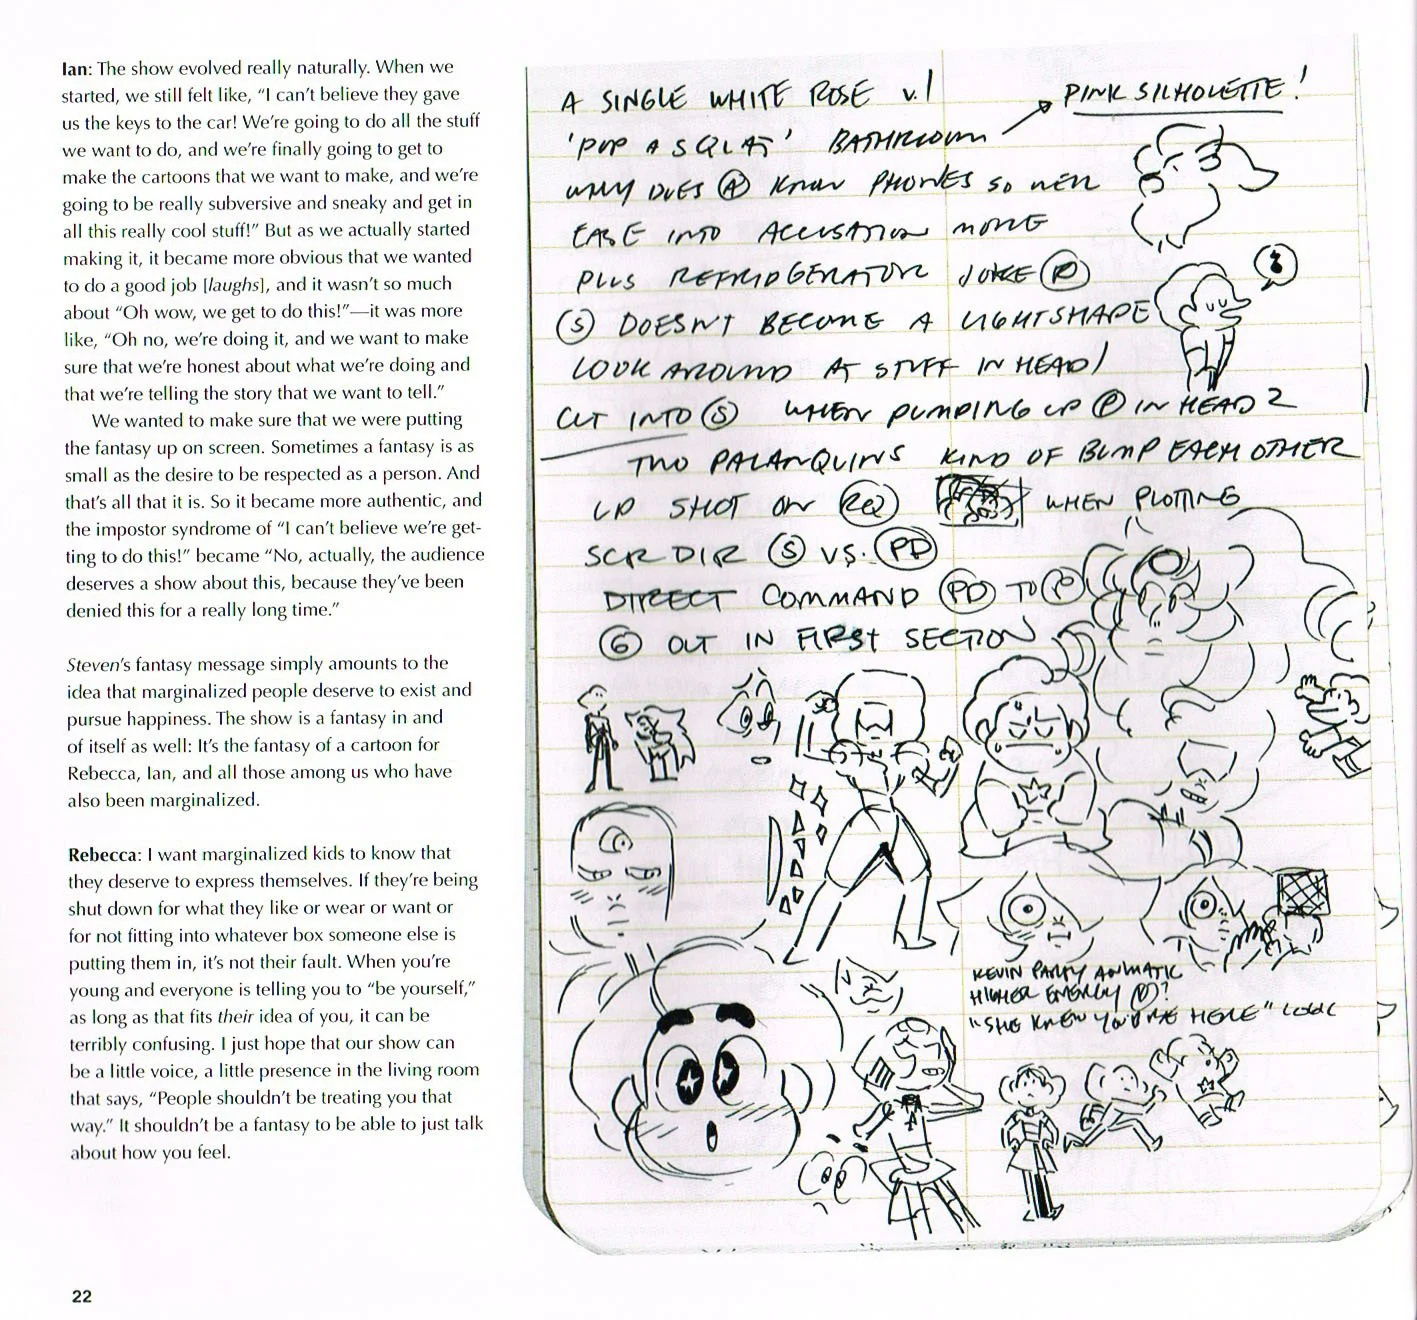 Ian: The show evolved really naturally. When we
started, we still felt like, “I can’t believe they gave
us the keys to the car! We’re going to do all the stuff
we want to do, and we’re finally going to get to
make the cartoons that we want to make, and we’re
going to be really subversive and sneaky and get in
all this really cool stuff!” But as we actually started
making it, it became more obvious that we wanted
to do a good job [laughs], and it wasn’t so much
about “Oh wow, we get to do this!”—it was more
like, “Oh no, we’re doing it, and we want to make
sure that we’re honest about what we’re doing and
that we’re telling the story that we want to tell.”
We wanted to make sure that we were putting
the fantasy up on screen. Sometimes a fantasy is as
small as the desire to be respected as a person. And
that’s all that it is. So it became more authentic, and
the impostor syndrome of “I can’t believe we’re get-
ting to do this!” became “No, actually, the audience
deserves a show about this, because they’ve been
denied this for a really long time.”
Steven’s fantasy message simply amounts to the
idea that marginalized people deserve to exist and
pursue happiness. The show is a fantasy in and
of itself as well: It’s the fantasy of a cartoon for
Rebecca, Ian, and all those among us who have
also been marginalized.
Rebecca: I want marginalized kids to know that
they deserve to express themselves. If they’re being
shut down for what they like or wear or want or
for not fitting into whatever box someone else is
putting them in, it’s not their fault. When you’re
young and everyone is telling you to “be yourself,”
as long as that fits their idea of you, it can be
terribly confusing. I just hope that our show can
be a little voice, a little presence in the living room
that says, “People shouldn’t be treating you that
way.” It shouldn’t be a fantasy to be able to just talk
about how you feel.
22
A SINGLE WHITE ROSE v.1
PINK SILHOUETTE!
'POP A SQUAT' BATHROOM
WHY DOES A KNOW PHONES SO WELL
EASE INTO ACCUSATION MORE
PLUS REFRIDGERATOR JOKE P
S DOESN'T BECOME A LIGHTSHAPE
LOOK AROUND AT STUFF IN HEAD 1
CUT INTO S WHEN PUMPING UP P IN HEAD 2
TWO PALANQUINS KIND OF BUMP EACH OTHER
UP SHOT ON RQ WHEN PLOTTING
SCR DIR S VS. PD
DIRECT COMMAND PD TO P
G OUT IN FIRST SECTION
KEVIN PARTY ANIMATIC
HIGHER ENERGY P?
"SHE KNEW YOU'RE HERE" LOOK